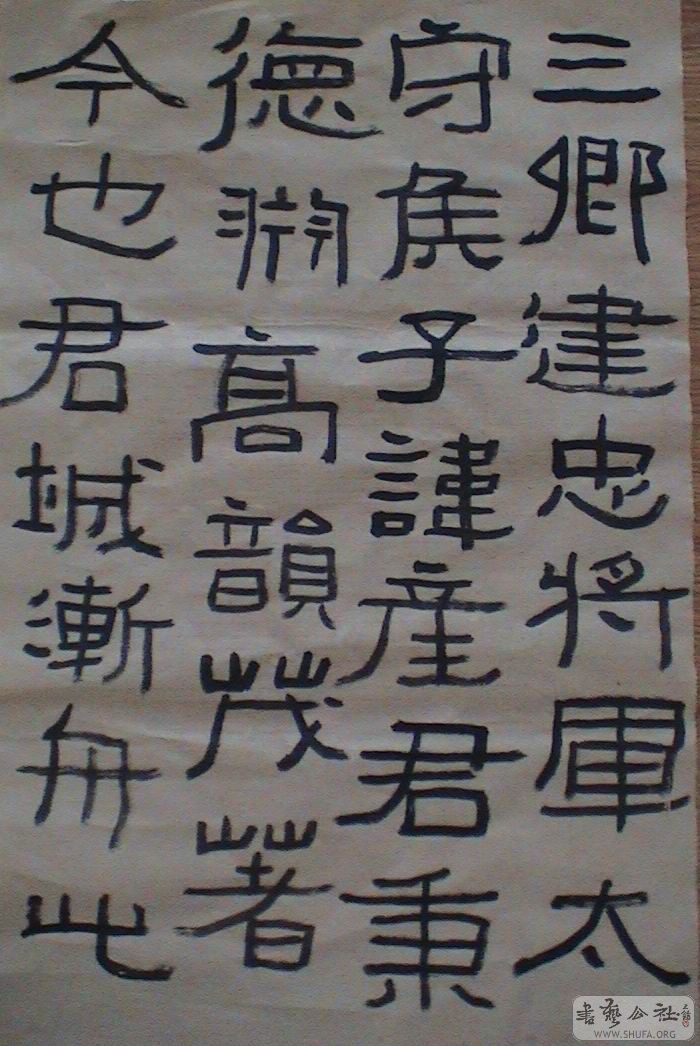 三卿建忠将軍太
守侯子謹產君秉
德渊高韻茂著
令也君城漸舟此
書藝公社
WWW.SHUFA.ORG